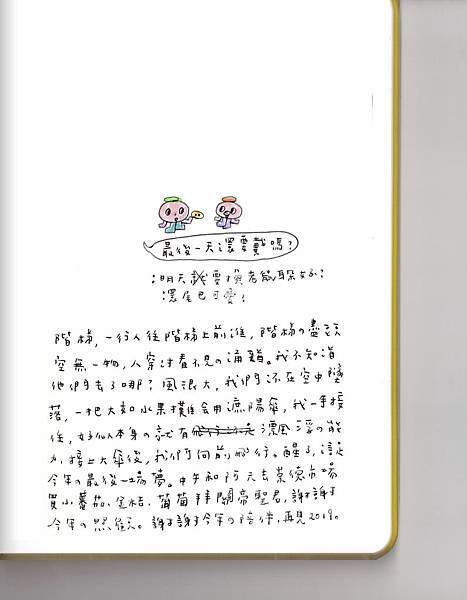 最後一天還要戴嗎?
:明天就要換
還是已可愛了
階梯,一行人往階梯上前進,階梯的盡頭
空無一物,人穿過看不見的通道。我不知道
他們去了哪?風很大,我們正在空中墜
落,一把大如水果攤在用遮陽傘,我一手接
住,好似本身の就有漂風浮の能
力,接上大傘後,我們向前飛行。醒了,這是
今年の最後一場夢。中午和阿元去榮德市場
買小蕃茄、金桔、葡萄拜關帝聖君,謝謝
今年の照顧。謝謝今年の陪伴,再見2019。